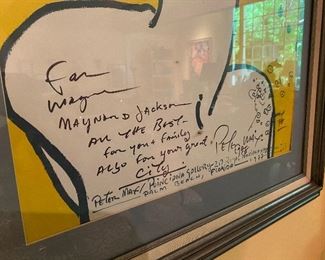 For
Mayor
Maynard Jackson
All the Best
for your Family
Also for your great
City! Peter Max
Peter Max / Poinciana Gallery
Palm Beach, Florida